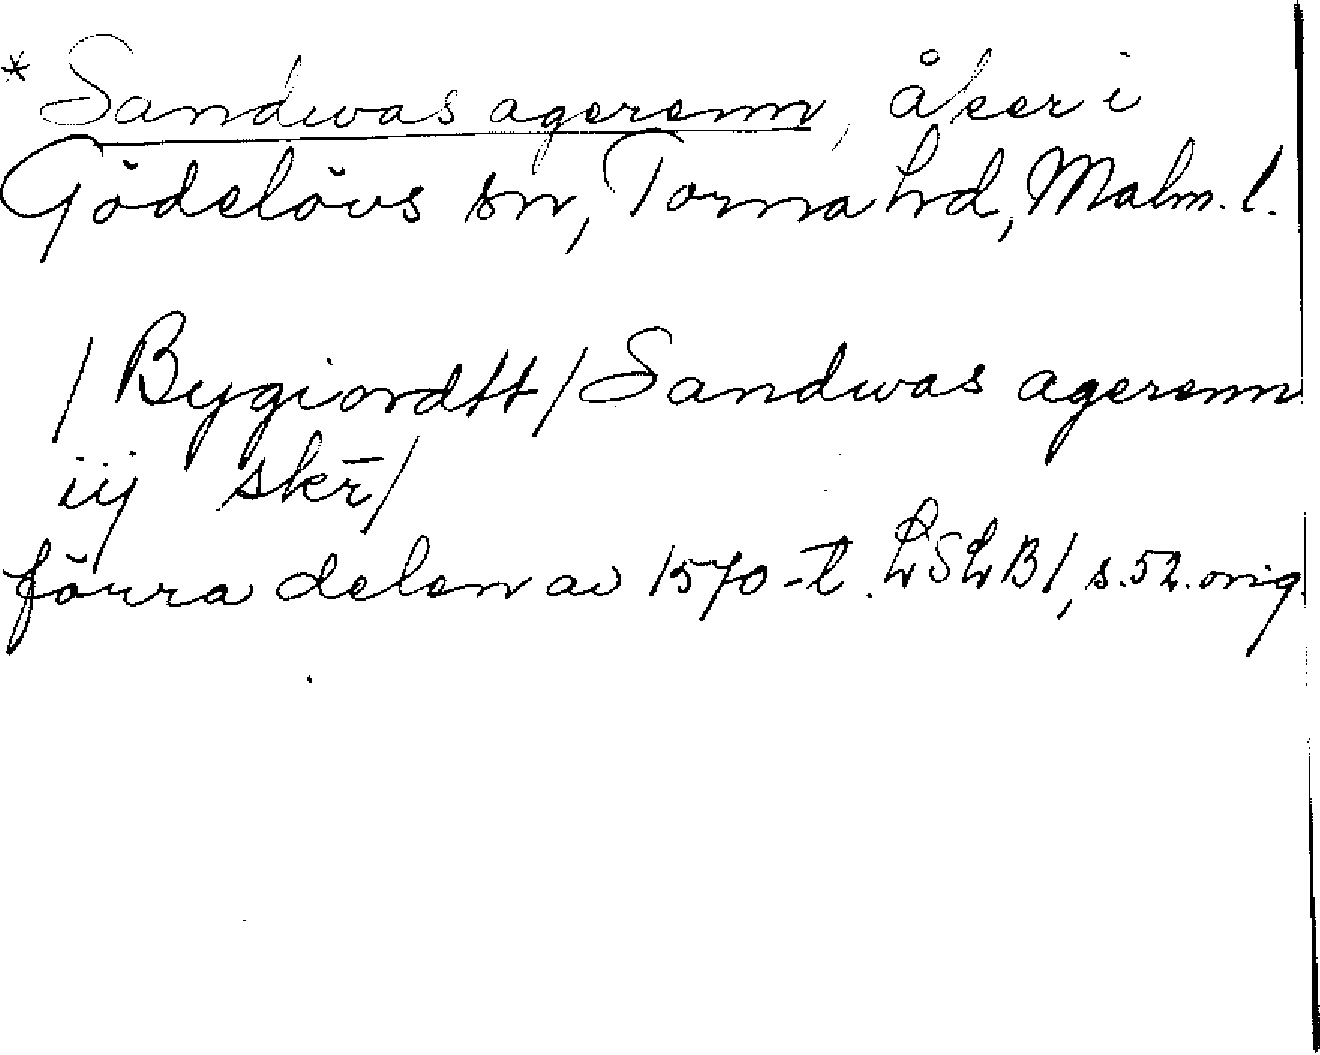 * Sandwas agerenn, åker i
Gödelövs sn, Torna hd, Malm. l.
/Bygiordtt/ Sandwas agerenn
iij skr̄/
förra delen av 1570-t. LSLB1, s. 52. orig.